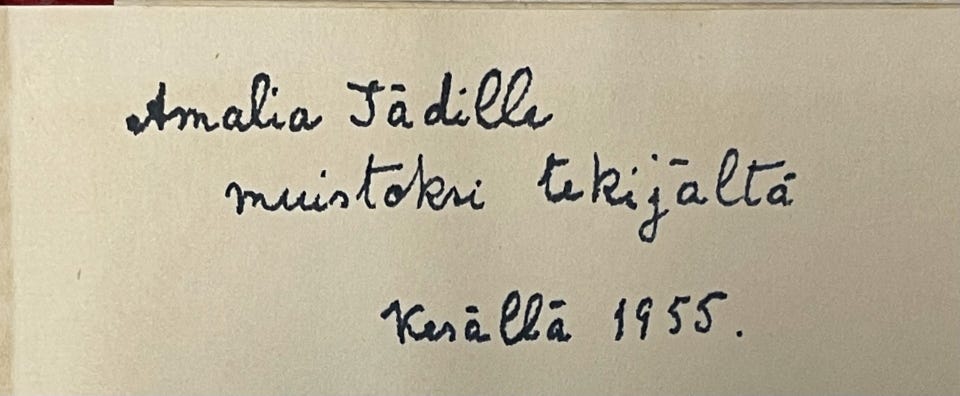 Amalia Tädille
muistoksi tekijältä
Kesällä 1955.